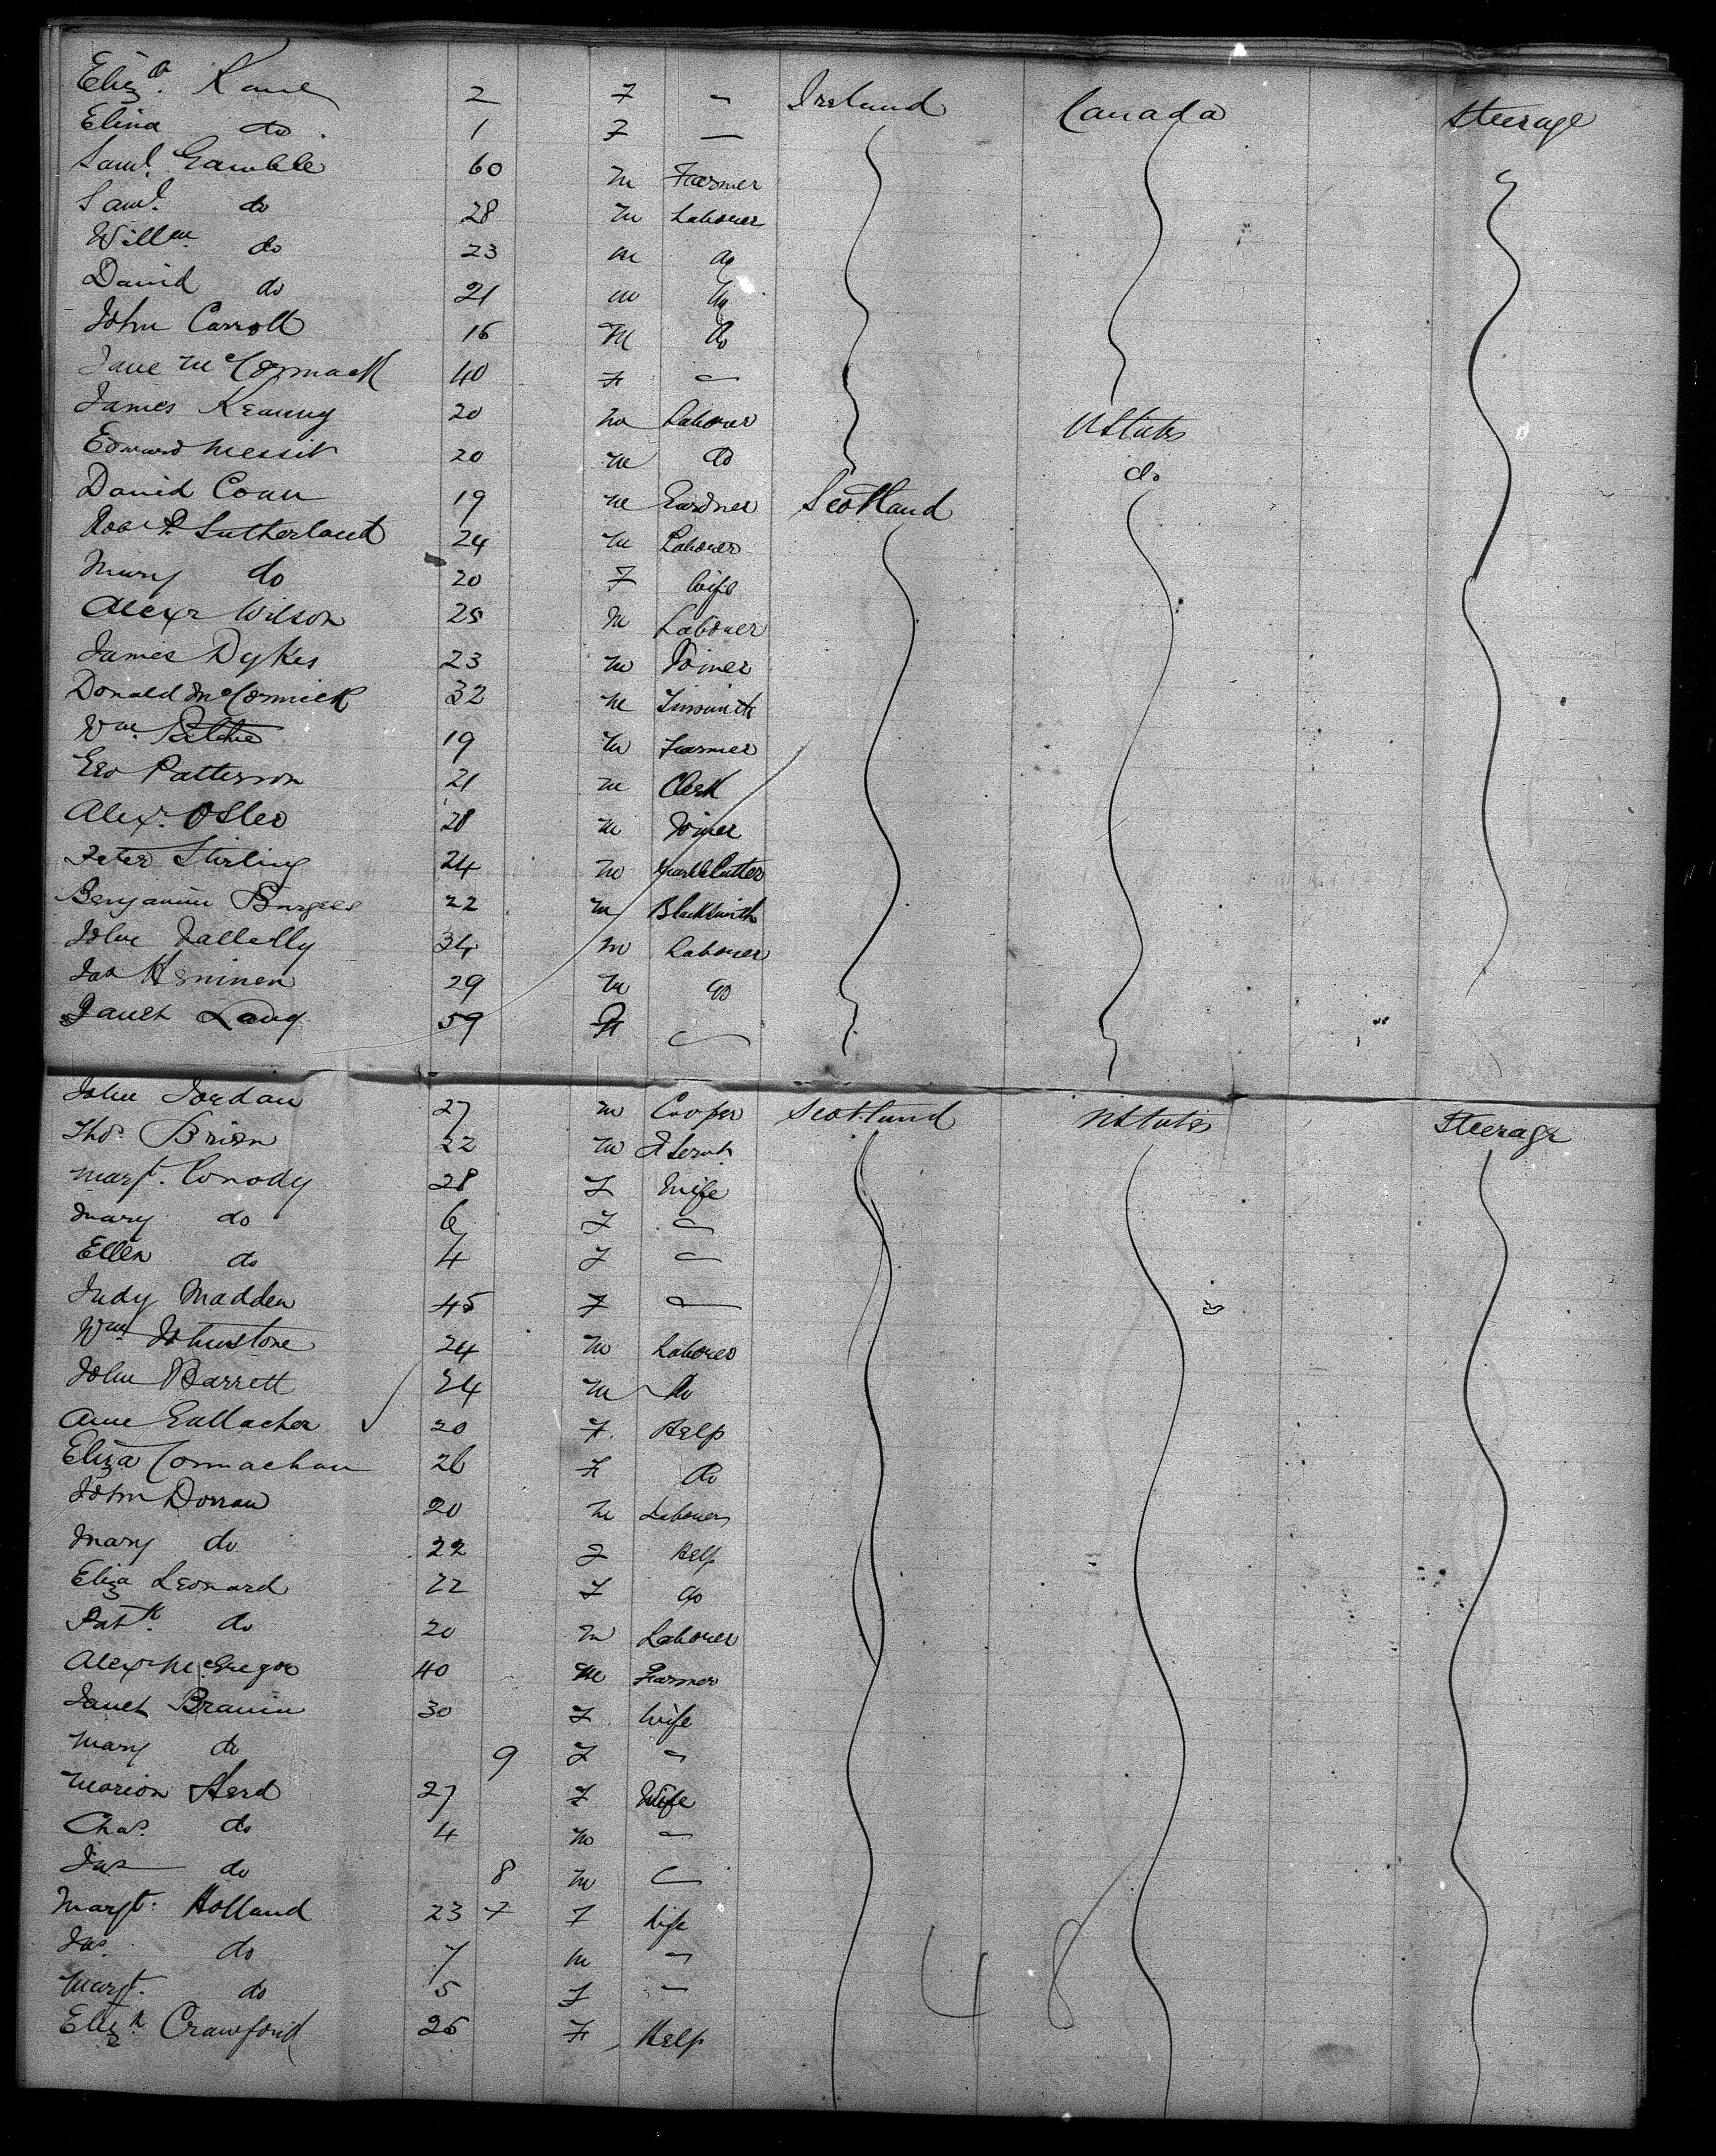 Eliza. Kane 2 F " Ireland Canada Steerage
Elina do 1 F —
Saml. Gamble 60 M Farmer
Saml. do 28 M Laborer
Willm. do 23 M do
David do 21 M do
John Carroll 16 M do
Jane McCormack 40 F —
James Kenny 20 M Laborer UStates
Edward Messit 20 M do do
David Coan 19 M Gardner Scotland
Robt. Sutherland 24 M Laborer
Mary do 20 F Wife
Alexr Wilson 25 M Laborer
James Dykes 23 M Joiner
Donald McCormick 32 M Tinsmith
Wm. Ritchie 19 M Farmer
Geo Patterson 21 M Clerk
Alexr. 28 M Joiner
Peter Stirling 24 M Marble Cutter
Benjamin Burgess 22 M Blacksmith
John 34 M Laborer
Jas 29 M do
Janet Lang 59 F —
John Jordan 27 M Cooper Scotland UStates Steerage
Thos. Brien 22 M
Margt. Conody 28 F Wife
Mary do 6 F —
Ellen do 4 F —
Judy Madden 45 F —
Wm Johnstone 24 M Laborer
John Barrett 24 M do
Anne Gallacher 20 F Help
Eliza Cormachan 26 F do
John Dorran 20 M Laborer
Mary do 22 F Help
Eliza Leonard 22 F do
Patk. do 20 M Laborer
Alexr McGregor 40 M Farmer
Janet 30 F Wife
Mary do 9 F "
Marion Herd 27 F Wife
Chas. do 4 M —
Jas do 8 M —
Margt. Holland 23 F Wife
Jas. do 7 M "
Margt. do 5 F —
Elizh. Crawford 25 F Help
48